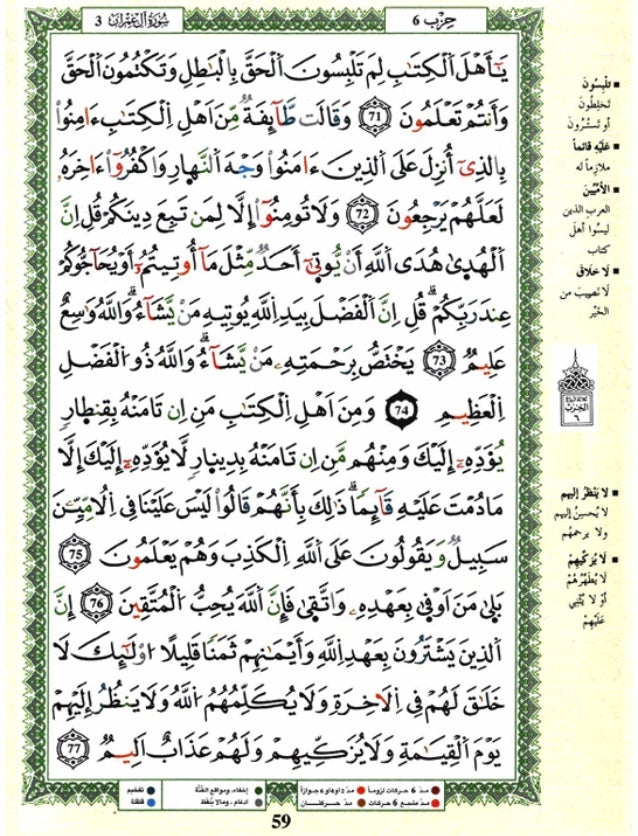 سُورَةُ آلِ عِمْرَانَ 3
حِزْب 6
يَـٰٓأَهْلَ اَ۬لْكِتَٰبِ لِمَ تَلْبِسُونَ اَ۬لْحَقَّ بِالْبَٰطِلِ وَتَكْتُمُونَ اَ۬لْحَقَّ
وَأَنتُمْ تَعْلَمُونَ 71 وَقَالَت طَّآئِفَةٌ مِّنَ اَهْلِ اِ۬لْكِتَٰبِ ءَامِنُواْ
بِالذِےٓ أُنزِلَ عَلَى اَ۬لذِينَ ءَامَنُواْ وَجْهَ اَ۬لنَّهارِ وَاكْفُرُوٓاْ ءَاخِرَهُۥ
لَعَلَّهُمْ يَرْجِعُونَ 72 وَلَا تُومِنُوٓاْ إِلَّا لِمَن تَبِعَ دِينَكُمْ قُلِ اِنَّ
اَ۬لْهُدَىٰ هُدَى اَ۬للَّهِ أَنْ يُّوتَىٰٓ أَحَدٌ مِّثْلَ مَآ أُوتِيتُمُۥٓ أَوْ يُحَآجُّوكُمْ
عِندَ رَبِّكُمْ قُلِ اِنَّ اَ۬لْفَضْلَ بِيَدِ اِ۬للَّهِ يُوتِيهِ مَنْ يَّشَآءُ وَاللَّهُ وَٰسِعٌ
عَلِيمٌ 73 يَخْتَصُّ بِرَحْمَتِهِۦ مَنْ يَّشَآءُ وَاللَّهُ ذُو اُ۬لْفَضْلِ
اِ۬لْعَظِيمِ 74 وَمِنَ اَهْلِ اِ۬لْكِتَٰبِ مَنِ اِن تَامَنْهُ بِقِنطِارٖ
يُؤَدِّهِۦٓ إِلَيْكَ وَمِنْهُم مَّنِ اِن تَامَنْهُ بِدِينارٖ لَّا يُؤَدِّهِۦٓ إِلَيْكَ إِلَّا
مَا دُمْتَ عَلَيْهِ قَآئِماً ذَٰلِكَ بِأَنَّهُمْ قَالُواْ لَيْسَ عَلَيْنَا فِے اِ۬لُامِّيِّـۧنَ
سَبِيلٌ وَيَقُولُونَ عَلَى اَ۬للَّهِ اِ۬لْكَذِبَ وَهُمْ يَعْلَمُونَ 75
بَلَىٰ مَنَ اَوْفَىٰ بِعَهْدِهِۦ وَاتَّقَىٰ فَإِنَّ اَ۬للَّهَ يُحِبُّ اُ۬لْمُتَّقِينَ 76 إِنَّ
اَ۬لذِينَ يَشْتَرُونَ بِعَهْدِ اِ۬للَّهِ وَأَيْمَٰنِهِمْ ثَمَناً قَلِيلًا اُوْلَٰٓئِكَ لَا
خَلَٰقَ لَهُمْ فِے اِ۬لَاخِرَةِ وَلَا يُكَلِّمُهُمُ اُ۬للَّهُ وَلَا يَنظُرُ إِلَيْهِمْ
يَوْمَ اَ۬لْقِيَٰمَةِ وَلَا يُزَكِّيهِمْ وَلَهُمْ عَذَابٌ اَلِيمٌ 77
تَلْبِسُونَ
تَخْلِطُونَ
أو تَسْتُرُونَ
عَلَيْهِ قَائِماً
ملازِماً له
الأُمِّيِّينَ
العرب الذين
ليسُوا أهلَ
كتاب
لَا خَلَاقَ
لَا نَصِيبَ من
الخَيْرِ
الحِزْبُ
٦
لَا يَنْظُرُ إليهم
لَا يُحسِنُ إليهم
ولا يرحمهُم
لَا يُزَكِّيهِمْ
لَا يُطَهِّرُهُمْ
أوْ لَا يُثْنِي
عَلَيْهِمْ
مدّ 6 حركات لزوماً
مدّ 2 او 4 او 6 جوازاً
إخفاء، ومواقع الغنّة
تفخيم
مدّ مشبع 6 حركات
مدّ حركتان
ادغام، ومالا يُلفظ
قلقلة
59